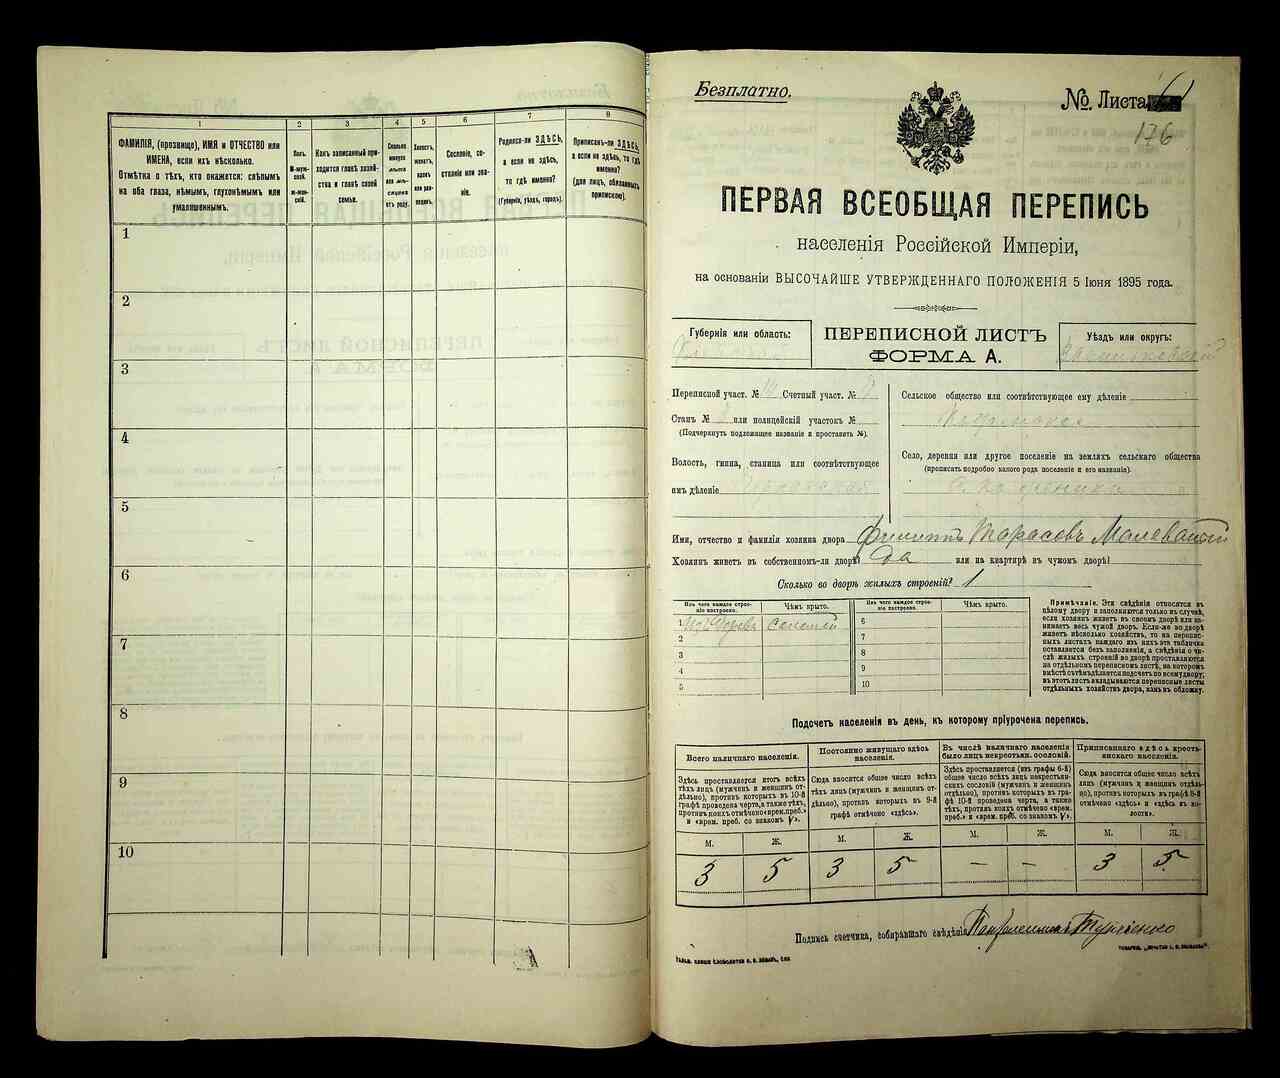 1
2
3
4
5
6
7
8
ФАМИЛІЯ, (прозвище), ИМЯ и ОТЧЕСТВО или
ИМЕНА, если ихъ нѣсколько.
Отмѣтка о тѣхъ, кто окажется: слѣпымъ
на оба глаза, нѣмымъ, глухонѣмымъ или
умалишеннымъ.
Полъ.
М-муж-
ской.
ж-жен-
скій.
Какъ записанный при-
ходится главѣ хозяй-
ства и главѣ своей
семьи.
Сколько
минуло
лѣтъ
или мѣ-
сяцевъ
отъ роду.
Холостъ,
женатъ,
вдовъ
или раз-
веденъ.
Сословіе, со-
стояніе или зва-
ніе.
Родился-ли ЗДѢСЬ,
а если не здѣсь,
то гдѣ именно?
(Губернія, уѣздъ, городъ).
Приписанъ-ли ЗДѢСЬ,
а если не здѣсь, то гдѣ
именно?
(для лицъ, обязанныхъ
припискою).
1
2
3
4
5
6
7
8
9
10
Безплатно.
№ Листа
176
ПЕРВАЯ ВСЕОБЩАЯ ПЕРЕПИСЬ
населенія Россійской Имперіи,
на основаніи ВЫСОЧАЙШЕ УТВЕРЖДЕННАГО ПОЛОЖЕНІЯ 5 Іюня 1895 года.
Губернія или область:
ПЕРЕПИСНОЙ ЛИСТЪ
ФОРМА А.
Уѣздъ или округъ:
Переписной участ. № Счетный участ. №
Станъ № или полицейскій участокъ №
(Подчеркнуть подлежащее названіе и проставить №).
Волость, гмина, станица или соотвѣтствующее
имъ дѣленіе
Сельское общество или соотвѣтствующее ему дѣленіе
Село, деревня или другое поселеніе на земляхъ сельскаго общества
(прописать подробно какого рода поселеніе и его названіе).
Имя, отчество и фамилія хозяина двора Филиппъ Тарасовъ
Хозяинъ живетъ въ собственномъ-ли дворѣ? Да или на квартирѣ въ чужомъ дворѣ?
Сколько во дворѣ жилыхъ строеній? 1
Изъ чего каждое строе-
ніе построено.
Чѣмъ крыто.
Изъ чего каждое строе-
ніе построено.
Чѣмъ крыто.
1 Изъ дерева соломой
2
3
4
5
6
7
8
9
10
Примѣчаніе. Эти свѣдѣнія относятся къ
цѣлому двору и заполняются только въ случаѣ,
если хозяинъ живетъ въ своемъ дворѣ или за-
нимаетъ весь чужой дворъ. Если-же во дворѣ
живетъ нѣсколько хозяйствъ, то на перепис-
ныхъ листахъ каждаго изъ нихъ эта табличка
оставляется безъ заполненія, а свѣдѣнія о чи-
слѣ жилыхъ строеній во дворѣ проставляются
на отдѣльномъ переписномъ листѣ, на которомъ
вмѣстѣ съ тѣмъ дѣлается подсчетъ по всему двору;
въ этотъ листъ вкладываются переписные листы
отдѣльныхъ хозяйствъ двора, какъ въ обложку.
Подсчетъ населенія въ день, къ которому пріурочена перепись.
Всего наличнаго населенія.
Постоянно живущаго здѣсь
населенія.
Въ числѣ наличнаго населенія
было лицъ некрестьян. сословій.
Приписаннаго здѣсь кресть-
янскаго населенія.
Здѣсь проставляется итогъ всѣхъ
тѣхъ лицъ (мужчинъ и женщинъ от-
дѣльно), противъ которыхъ въ 10-й
графѣ проведена черта, а также тѣхъ,
противъ коихъ отмѣчено «врем. преб.»
и «врем. преб. со знакомъ V».
Сюда вносится общее число всѣхъ
тѣхъ лицъ (мужчинъ и женщинъ от-
дѣльно), противъ которыхъ въ 9-й
графѣ отмѣчено «здѣсь».
Здѣсь проставляется (изъ графы 6-й)
общее число всѣхъ лицъ некрестьян-
скихъ сословій (мужчинъ и женщинъ
отдѣльно), противъ которыхъ въ гра-
фѣ 10-й проведена черта, а также
тѣхъ, противъ коихъ отмѣчено «врем.
преб.» и «врем. преб. со знакомъ V».
Сюда вносится общее число всѣхъ
лицъ (мужчинъ и женщинъ отдѣль-
но), противъ которыхъ въ графѣ 8-й
отмѣчено «здѣсь» и «здѣсь въ во-
лости».
М. Ж. М. Ж. М. Ж. М. Ж.
3 5 3 5 – – 3 5
Подпись счетчика, собиравшаго свѣдѣнія